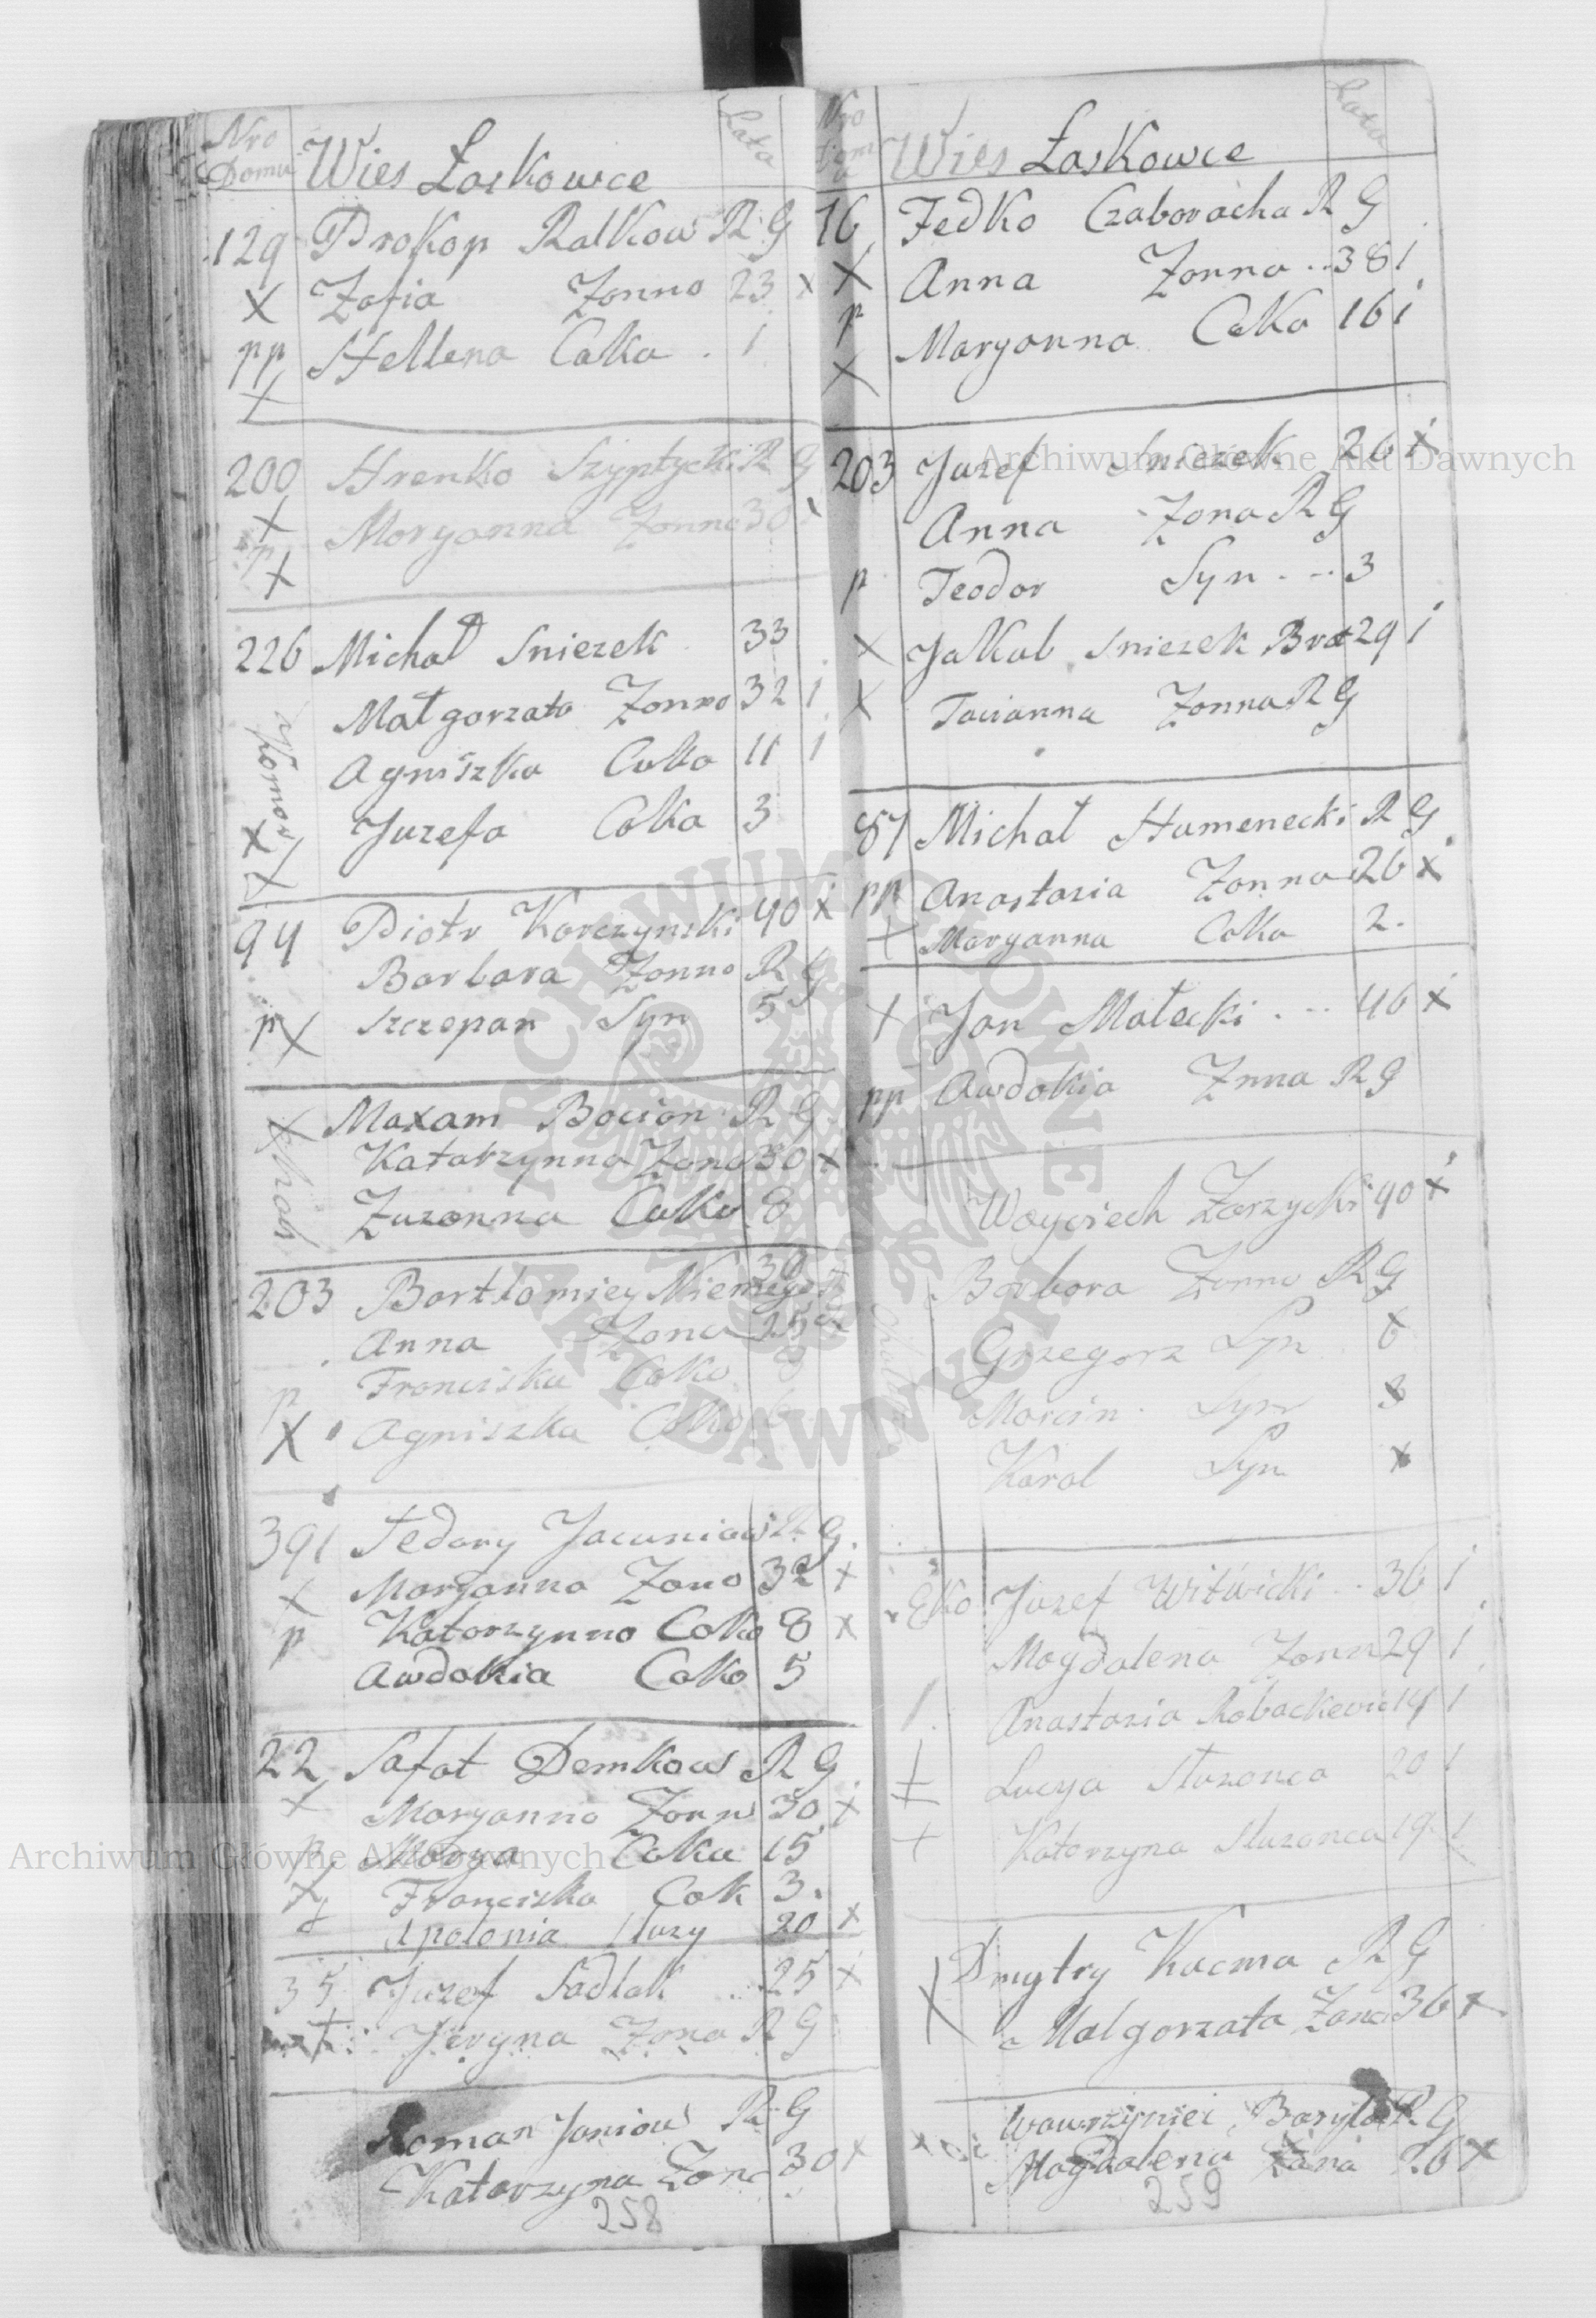 Nro Domu Wies Łoskowce Lata
129 Prokop Ralkow R G
X Zofia Zonno 23 x
pp Hellena Calka . 1
X
200 Hrenko Szyptycki R G
X Moryanna Zonno 30
p
X
226 Michał Sniezek 33
Małgorzata Zonno 32 i
Agniszka Calka 11 i
Juzefa Calka 3
komor
X X
94 Piotr Korczynski 40 x
Barbara Zonno R G
p X Szczepan Syn 5
X Maxam Bocion R G
Katarzynna Zona 30 x
Zuzanna Calka 8
203 Bartłomiey 39
Anna Zona 25
p Franciska Calka 8
X Agniszka Calka 6
391 Fedory Jacuniow R G.
X Moryanna Zono 32 x
p Katorzynno Calka 8 x
Awdokia Calko 5
22 Safat Demkow R G
X Moryanna Zonn 30 x
p Marya Calka 15
X Franciska Calk 3.
Apolonia Słuzy 20 x
35 Juzef Sadlak 25 x
Jeryna Zona R G
Roman Janiow R G
Katarzyna Zona 30 x
258
Nro Domu Wies Łoskowce Lata
16 Fedko Czaboracha R G
X Anna Zonno .. 38 i
p Maryanna Calka 16 i
X
203 Juzef Sniezek 26 x
Anna Zona R G
p Teodor Syn . -- 3
X Jakub Sniezek Brat 29 i
X Tacianna Zonna R G
87 Michał Humenecki R G
pp Anastazia Zonna 26 x
X Maryanna Calka 2.
X Jan Małecki . -- 46 x
pp Awdokia Znna R G
Woyciech Zarzycki 40 x
Barbora Zonno R G
Grzegorz Syn 6
Morcin . Syn 3
Karol Syn x
Eko Juzef Witwicki .. 36 i
Magdalena Zonn 29 i
Anastazia 14 i
Lucya Słuzonca 20 i
Katorzyna Słuzonca 19 i
X Dmytry Kacma R G
Malgorzata Zona 36 x
Wawrzyniec Baryła R G
Magdalena Zana 26 x
259
Archiwum Główne Akt Dawnych
Archiwum Główne Akt Dawnych
ARCHIWUM GŁÓWNE AKT DAWNYCH